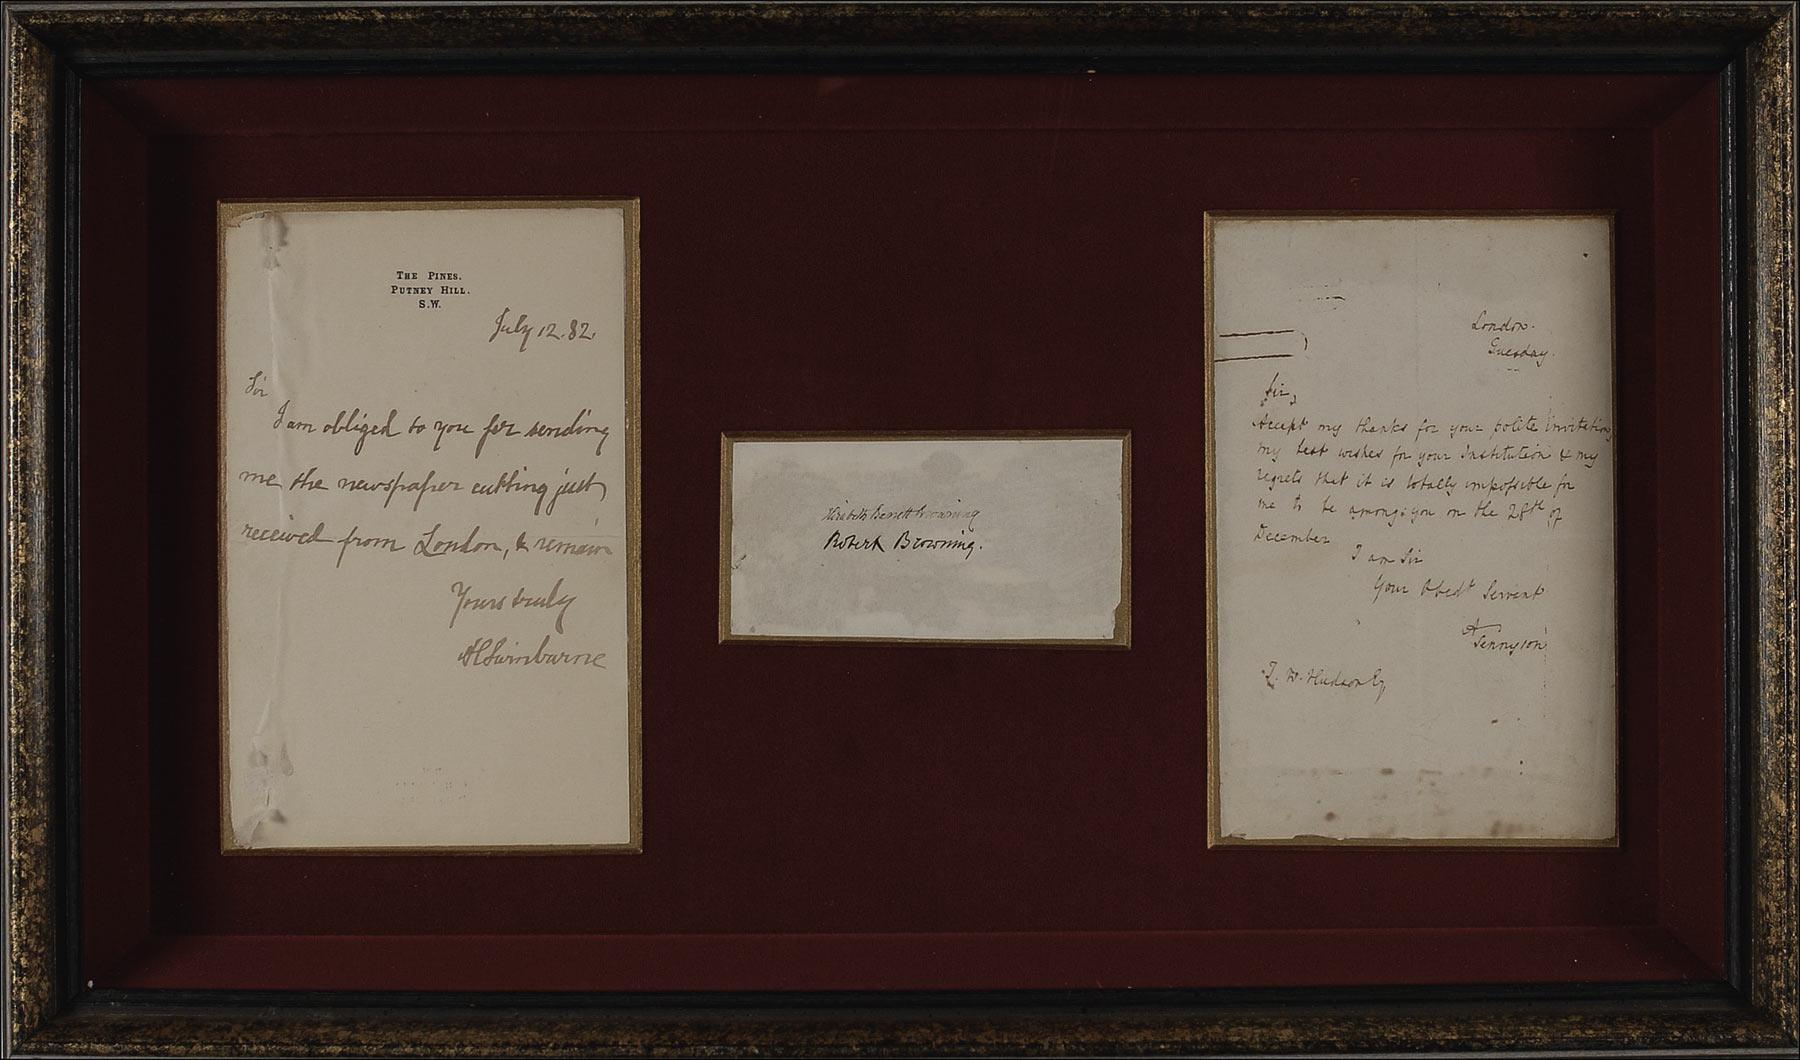 THE PINES.
PUTNEY HILL.
S.W.
July 12. 82.
Sir
I am obliged to you for sending
me the newspaper cutting just
received from London, & remain
Yours truly
ACSwinburne
Elizabeth Barrett Browning
Robert Browning.
London.
Tuesday.
Sir,
Accept my thanks for your polite invitation
my best wishes for your Institution & my
regrets that it is totally impossible for
me to be among you on the 28th of
December
I am Sir
Your Obedt Servant
A Tennyson
T. W. Hudson Esq